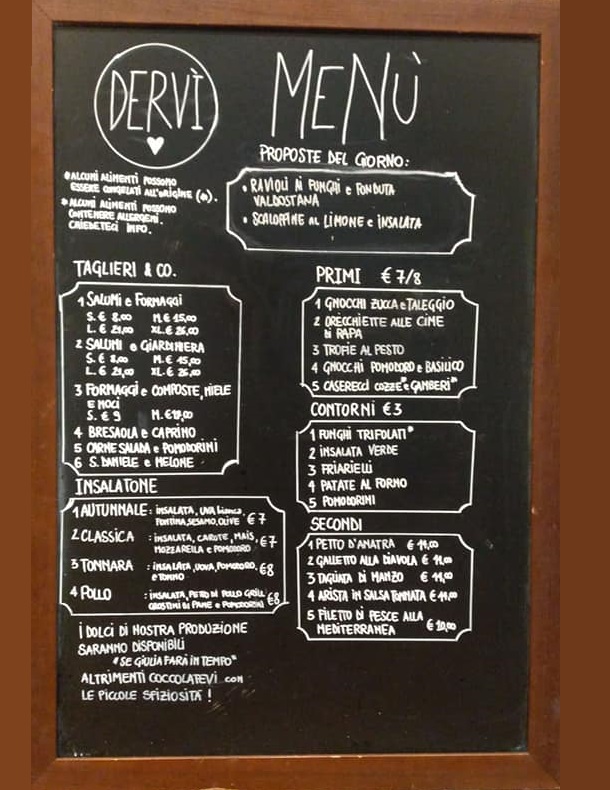 DERVÌ
MENÙ
*ALCUNI ALIMENTI POSSONO
ESSERE CONGELATI ALL'ORIGINE (*).
*ALCUNI ALIMENTI POSSONO
CONTENERE ALLERGENI.
CHIEDETECI INFO.
PROPOSTE DEL GIORNO:
• RAVIOLI AI FUNGHI e FONDUTA
VALDOSTANA
• SCALOPPINE AL LIMONE e INSALATA
TAGLIERI & CO.
1 SALUMI e FORMAGGI
S. € 8,00 M. € 15,00
L. € 21,00 XL. € 26,00
2 SALUMI e GIARDINIERA
S. € 8,00 M. € 15,00
L. € 21,00 XL. € 26,00
3 FORMAGGI e COMPOSTE, MIELE
E NOCI
S. € 9 M. €
4 BRESAOLA e CAPRINO
5 CARNE SALADA e POMODORINI
6 S. DANIELE e MELONE
INSALATONE
1 AUTUNNALE : INSALATA, UVA bianca,
FONTINA, SESAMO, OLIVE € 7
2 CLASSICA : INSALATA, CAROTE, MAIS, € 7
MOZZARELLA e POMODORO
3 TONNARA : INSALATA, UOVA, POMODORO, €8
e TONNO
4 POLLO : INSALATA, PETTO DI POLLO GRILL €8
CROSTINI DI PANE e POMODORINI
I DOLCI DI NOSTRA PRODUZIONE
SARANNO DISPONIBILI
"SE GIULIA FARÀ IN TEMPO"
ALTRIMENTI COCCOLATEVI con
LE PICCOLE SFIZIOSITÀ !
PRIMI € 7/8
1 GNOCCHI ZUCCA e TALEGGIO
2 ORECCHIETTE ALLE CIME
DI RAPA
3 TROFIE AL PESTO
4 GNOCCHI POMODORO e BASILICO
5 CASERECCI COZZE* e GAMBERI*
CONTORNI € 3
1 FUNGHI TRIFOLATI*
2 INSALATA VERDE
3 FRIARIELLI
4 PATATE AL FORNO
5 POMODORINI
SECONDI
1 PETTO D'ANATRA € 14,00
2 GALLETTO ALLA DIAVOLA € 11,00
3 TAGLIATA DI MANZO € 14,00
4 ARISTA IN SALSA TONNATA €
5 FILETTO DI PESCE ALLA
MEDITERRANEA € 10,00